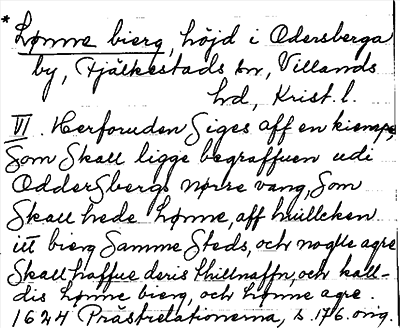 * Lønne bierg, höjd i Odersberga
by, Fjälkestads sn, Villands
hd, Krist. l.
VI. Herforuden Siges aff en kiempe,
Som Skall ligge begraffuen udi
OdderSbergs nørre vang, Som
Skall hede Lønne, aff huillcken
itt bierg Samme Steds, och nogle agre
Skall haffue deris thillnaffn, och kall-
dis Lønne bierg, och Lønne agre.
1624 Prästrelationerna, s. 176. orig.